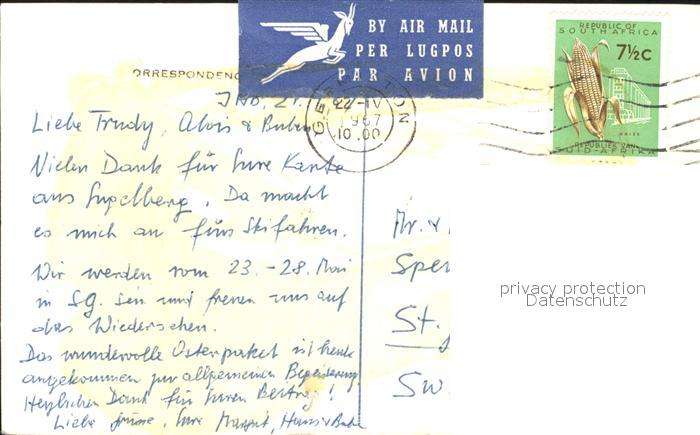 BY AIR MAIL
PER LUGPOS
PAR AVION
REPUBLIC OF
SOUTH AFRICA
7½c
MAIZE
REPUBLIEK VAN
SUID-AFRIKA
ORRESPONDENC
24-IV
1967
10.00
Liebe Trudy, Alois & Buben
Vielen Dank für Eure Karte
aus Engelberg. Da macht
es mich an fürs Skifahren.
Wir werden vom 23.-28. Mai
in S.G. sein und freuen uns auf
das Wiedersehen.
Das wundervolle Osterpaket ist heute
angekommen zur allgemeinen Begeisterung
Herzlichen Dank für Euren Beitrag!
Liebe Grüsse, Eure Margrit, Hans & Bube
Mr. &
Spe
St.
Sw
privacy protection
Datenschutz